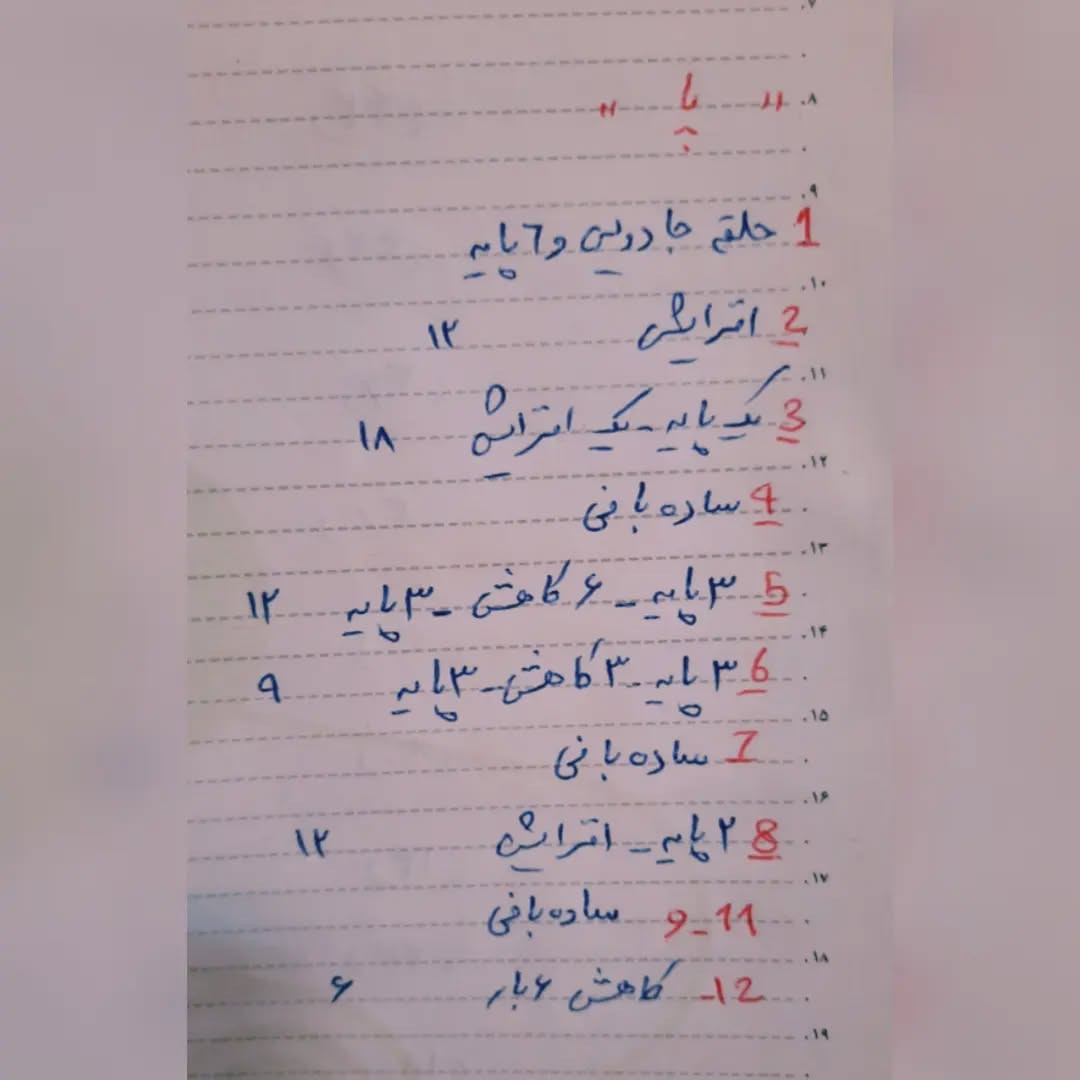 ۷
۸ " پا "
۹
1 حلقه جادویی و 6 پایه
۱۰
2 افزایش ۱۲
۱۱
3 یک پایه - یک افزایش ۱۸
۱۲
4 ساده بافی
۱۳
5 ۳ پایه - ۶ کاهش - ۳ پایه ۱۲
۱۴
6 ۳ پایه - ۳ کاهش - ۳ پایه ۹
۱۵
7 ساده بافی
۱۶
8 ۲ پایه - افزایش ۱۲
۱۷
9-11 ساده بافی
۱۸
12- کاهش ۶ بار ۶
۱۹